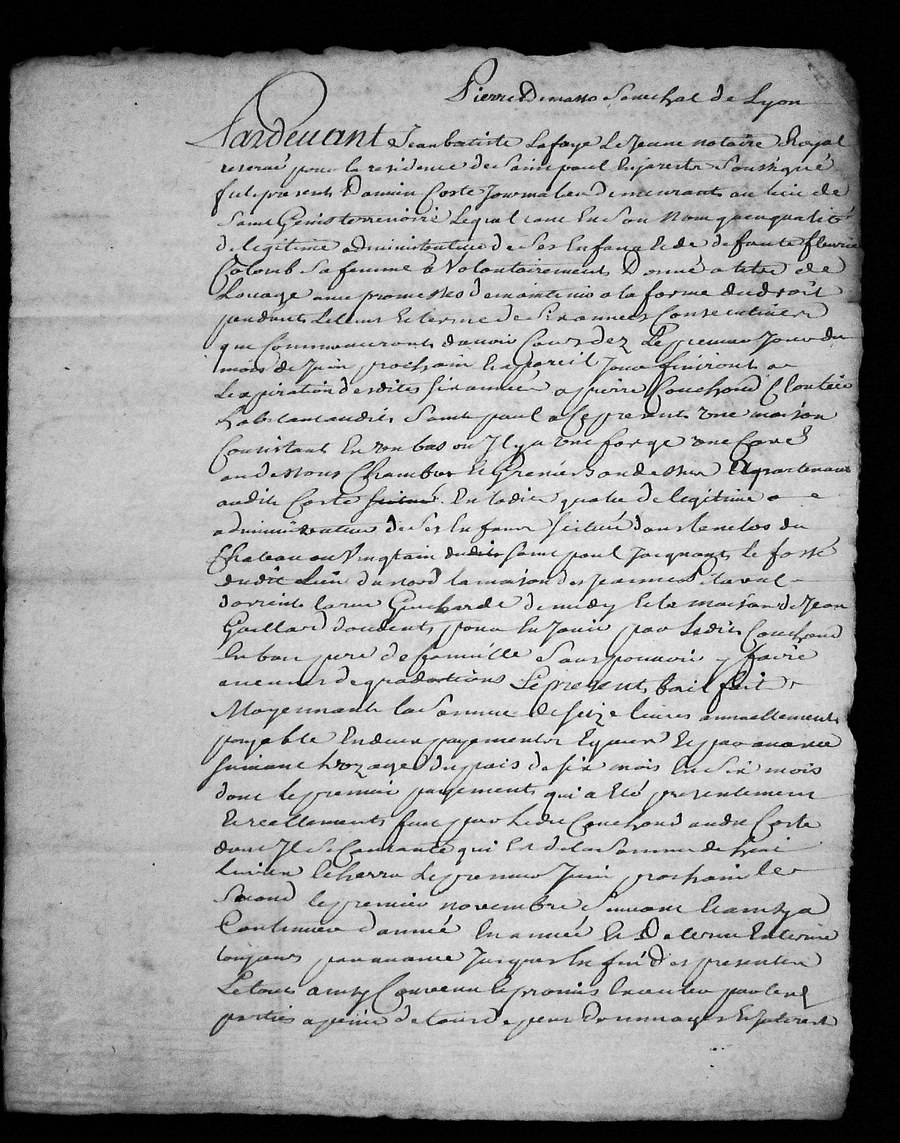 Pierre Demasso Senechal de Lyon
Pardevant Jean batiste Lafaye Le Jeune notaire Royal
reservé pour la residence de Saint paul En jarestz Soussigné
fut present Damien Coste Journalier demeurant au lieu de
Saint Genis terrenoire Lequel tant En Son Nom qu'en qualité
de legitime administrateur de Ses Enfans Et de defunte fleurie
Colomb Sa femme a Volontairement Donné a titre de
Louage avec promesse de maintenir a la forme du droit
pendant Le tems Et terme de Six années Consecutives
que Commenceront davoir Cours dez Le premier Jour du
mois de Juin prochain Et a pareil Jour finiront a
Lexpiration desdites Six années a pierre Couchoud Cloutier
habitant audit Saint paul a Ce present Une maison
Consistant En Un bas ou Il y a Une forge Une Cave
au dessous Chambre Et Grenier au dessus Apartenant
audit Coste En ladite qualité de legitime
administrateur de Ses Enfans Scitué dans lenclos du
Chateau ou Vingtain dudit Saint paul Joignant le fossé
dudit Lieu du nord la maison de Jeanne
dorient la rue Guicharde de midy Et la maison de Jean
Gaillard doccident pour En Jouir par Ledit Couchoud
En bon pere de famille Sans pouvoir y faire
aucunes degradations Le present bail fait
Moyennant la Somme de Seize livres annuellement
payable En deux payements Egaux Et par avance
Suivant Lusage du pais de Six mois En Six mois
dont le premier payement qui a Eté presentement
Et reellement fait par Ledit Couchoud audit Coste
dont Il Se Contente qui Est de la Somme de huit
livres Echerra Le premier Juin prochain le
Second le premier novembre Suivant Et ainsy a
Continuer dannée En année Et De terme En terme
toujours par avance Jusques En fin des presentes
Le tout ainsy Convenu Et promis Executer par les
parties a peine de tous depens dommages Et Interest